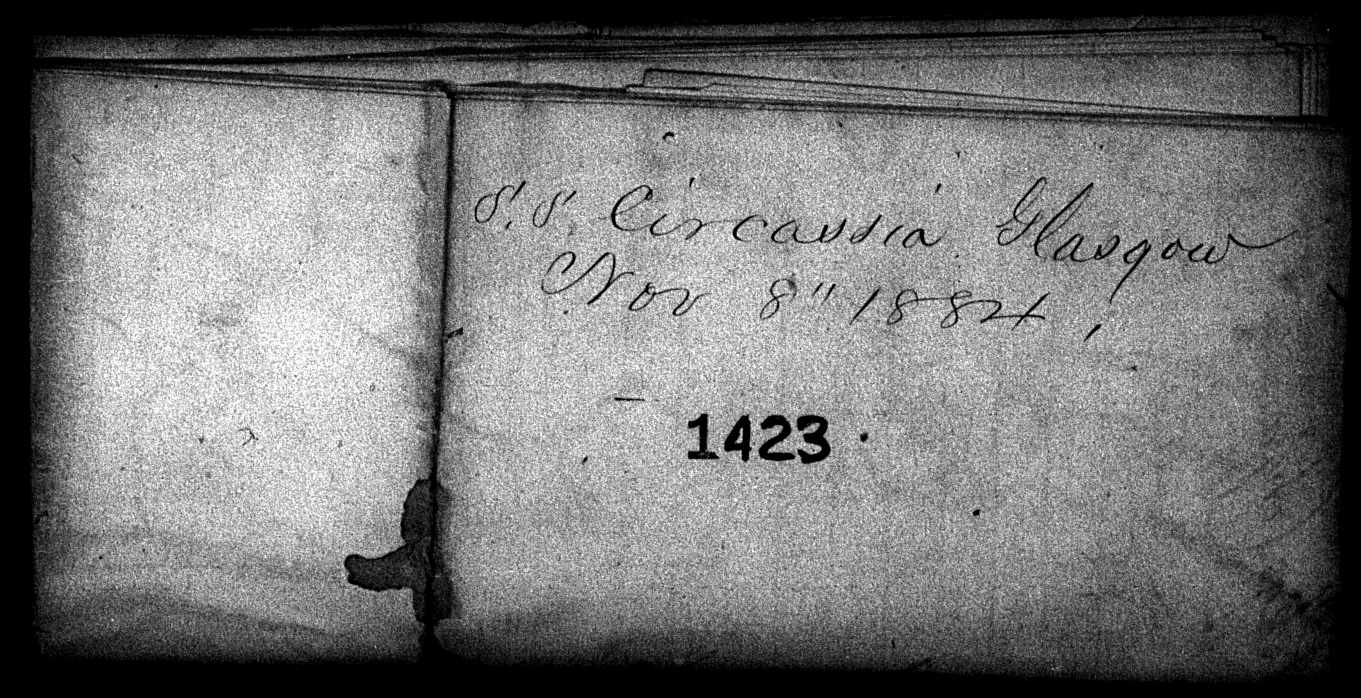 S.S. Circassia Glasgow
Nov 8" 1884,
1423